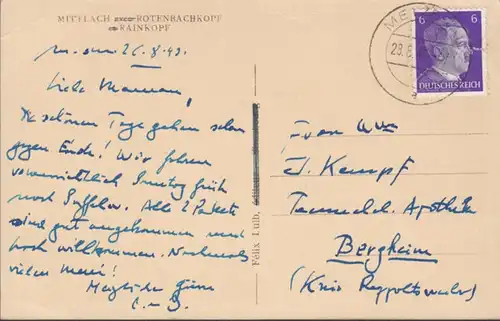 MITTLACH ROTENBACHKOPF
RAINKOPF
26.8.43.
Liebe Maman,
Die schönen Tage gehen schon
gegen Ende! Wir fahren
voraussichtlich Sonntag früh
nach Alle 2 Pakete
sind gut angekommen und
hoch willkommen. Nochmals
vielen merci!
Herzliche Grüsse
Félix Luib,
6 6
DEUTSCHES REICH
Frau
J. Kempf
Apotheke
Bergheim
(Kreis Rappoltsweiler)